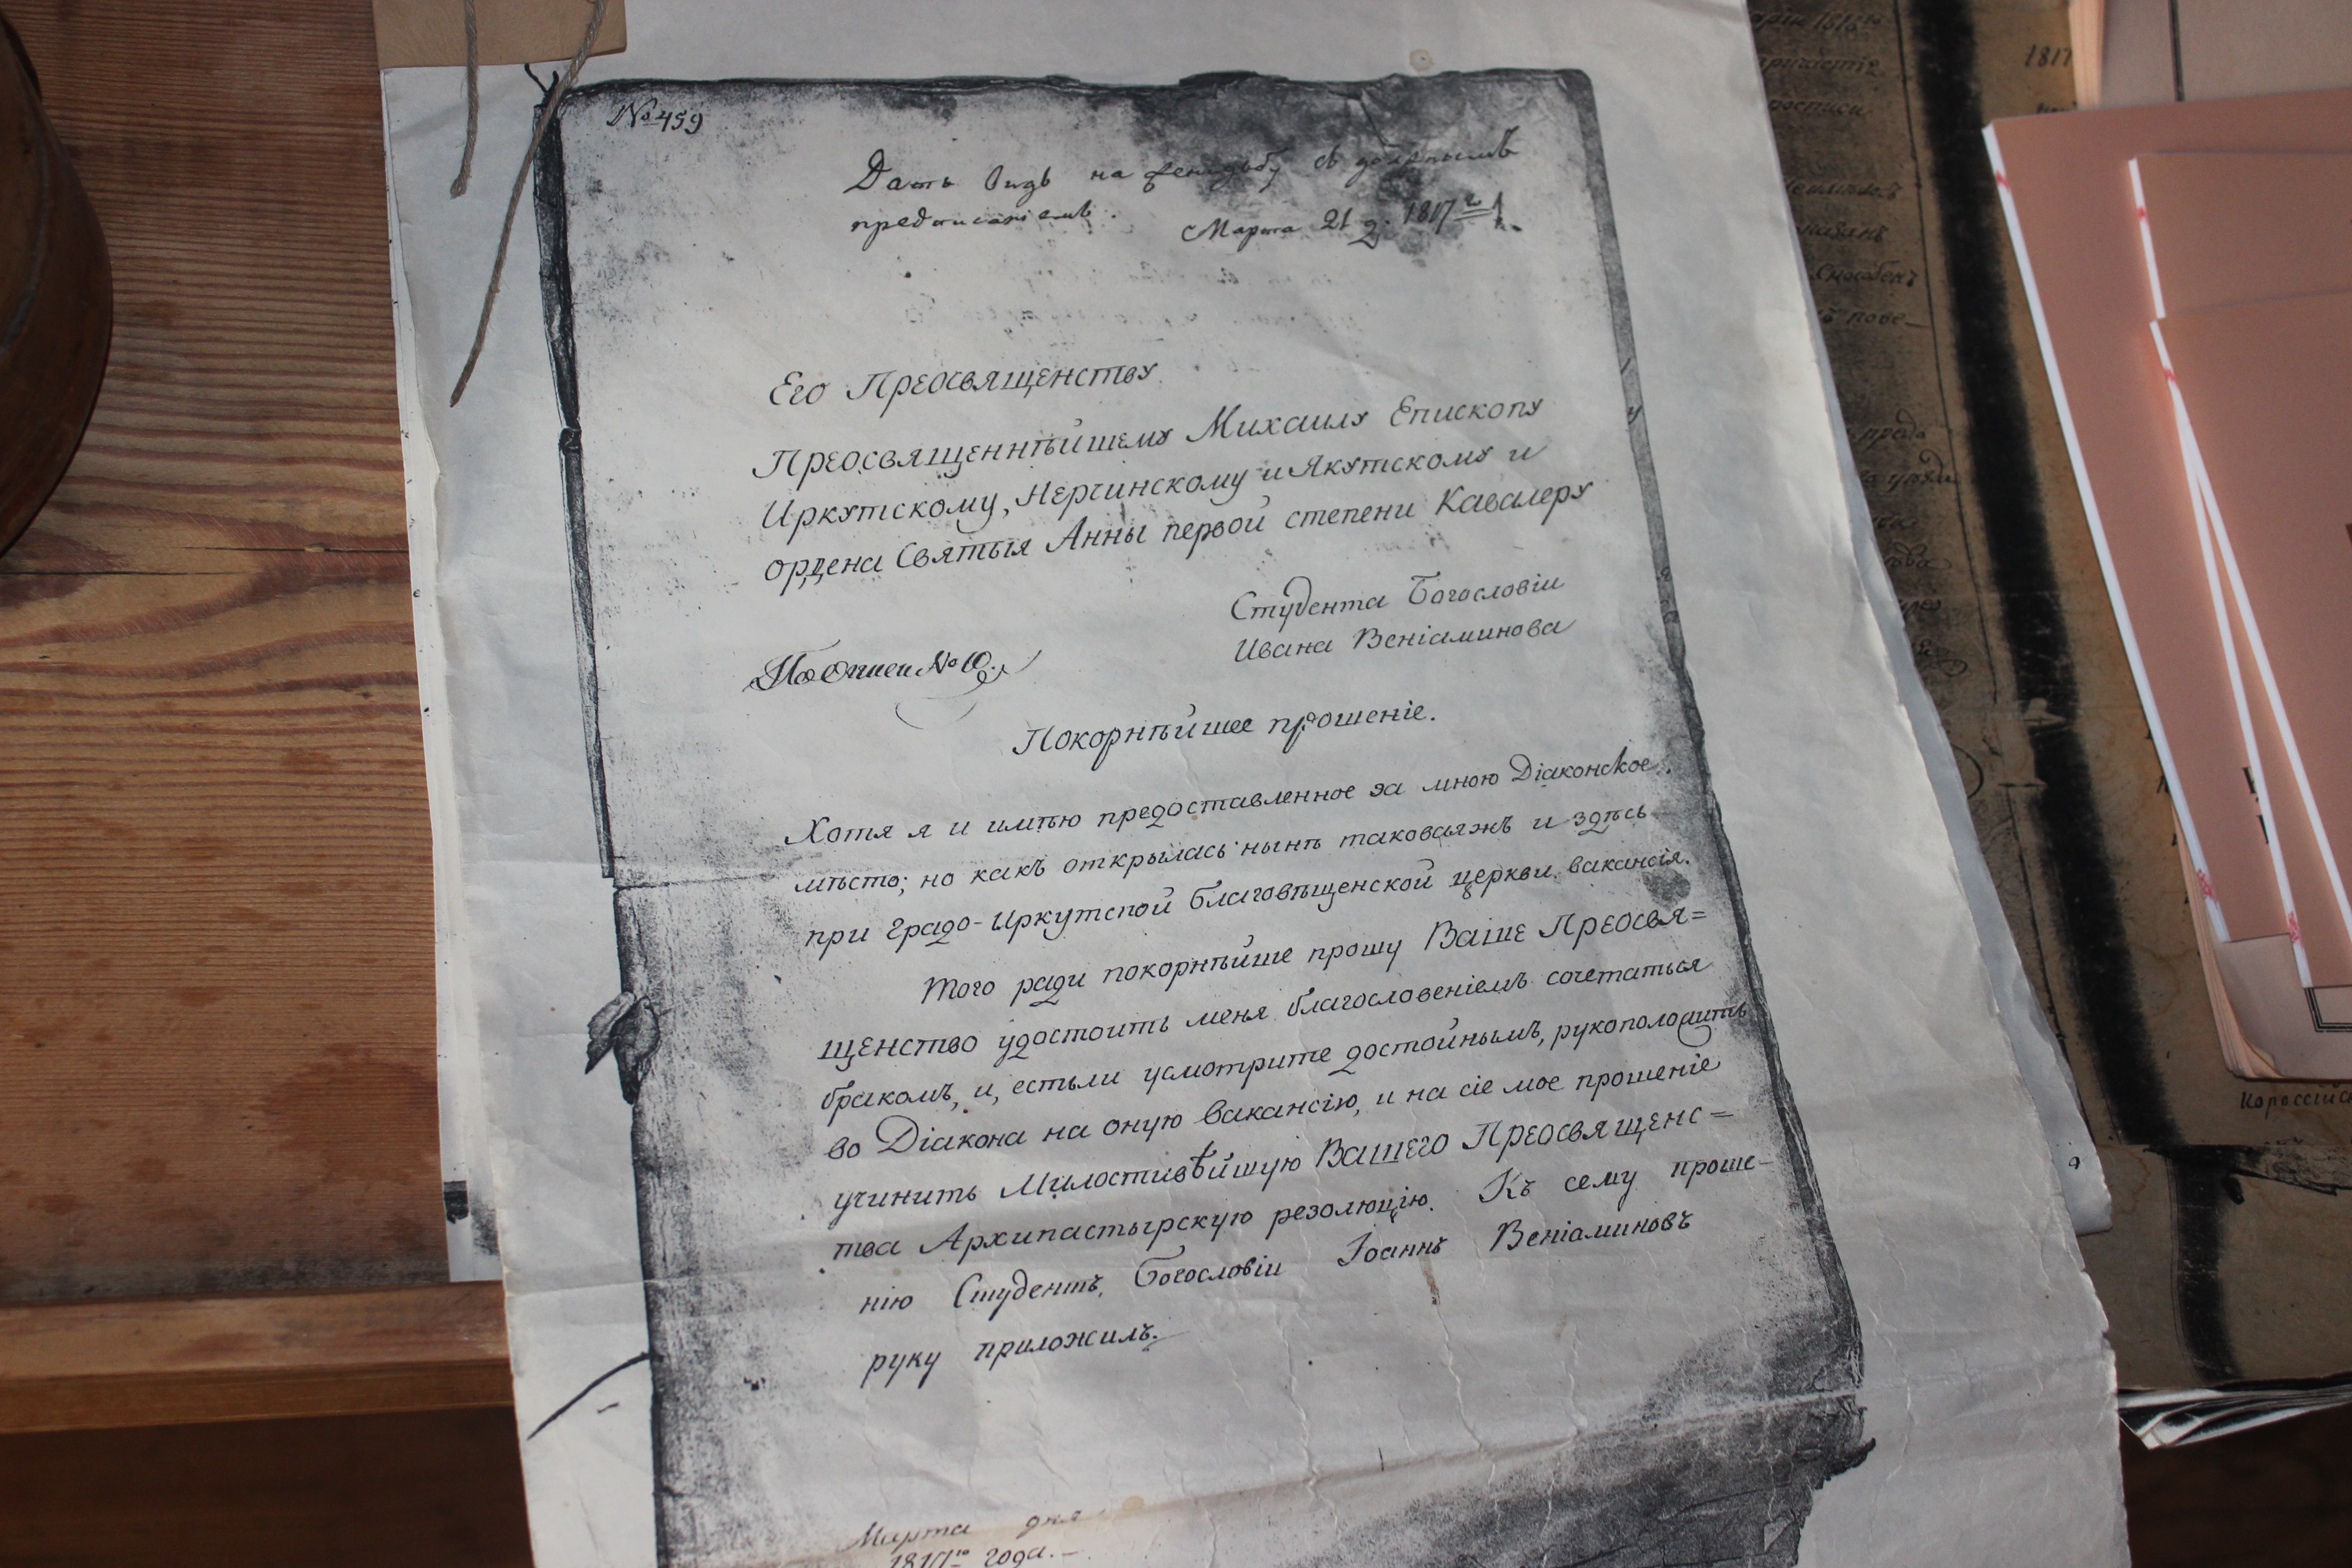 № 459
Дать видъ на женидьбу съ должнымъ
предписаніемъ. Марта 21 д. 1817 г.
Его Преосвященству
Преосвященнѣйшему Михаилу Епископу
Иркутскому, Нерчинскому и Якутскому и
ордена Святыя Анны первой степени Кавалеру
Студента Богословіи
Ивана Веніаминова
По описи № 10.
Покорнѣйшее прошеніе.
Хотя я и имѣю предоставленное за мною Діаконское
мѣсто; но какъ открылась нынѣ таковаяжъ и здѣсь
при Градо-Иркутской благовѣщенской церкви вакансія.
Того ради покорнѣйше прошу Ваше Преосвя=
щенство удостоить меня благословеніемъ сочетаться
бракомъ, и, естьли усмотрите достойнымъ, рукоположить
во Діакона на оную вакансію, и на сіе мое прошеніе
учинить Милостивѣйшую Вашего Преосвященс=
тва Архипастырскую резолюцію. Къ сему проше-
нію Студентъ Богословіи Іоаннъ Веніаминовъ
руку приложилъ.
Марта дня
1817го года.
1817
способенъ
пове-